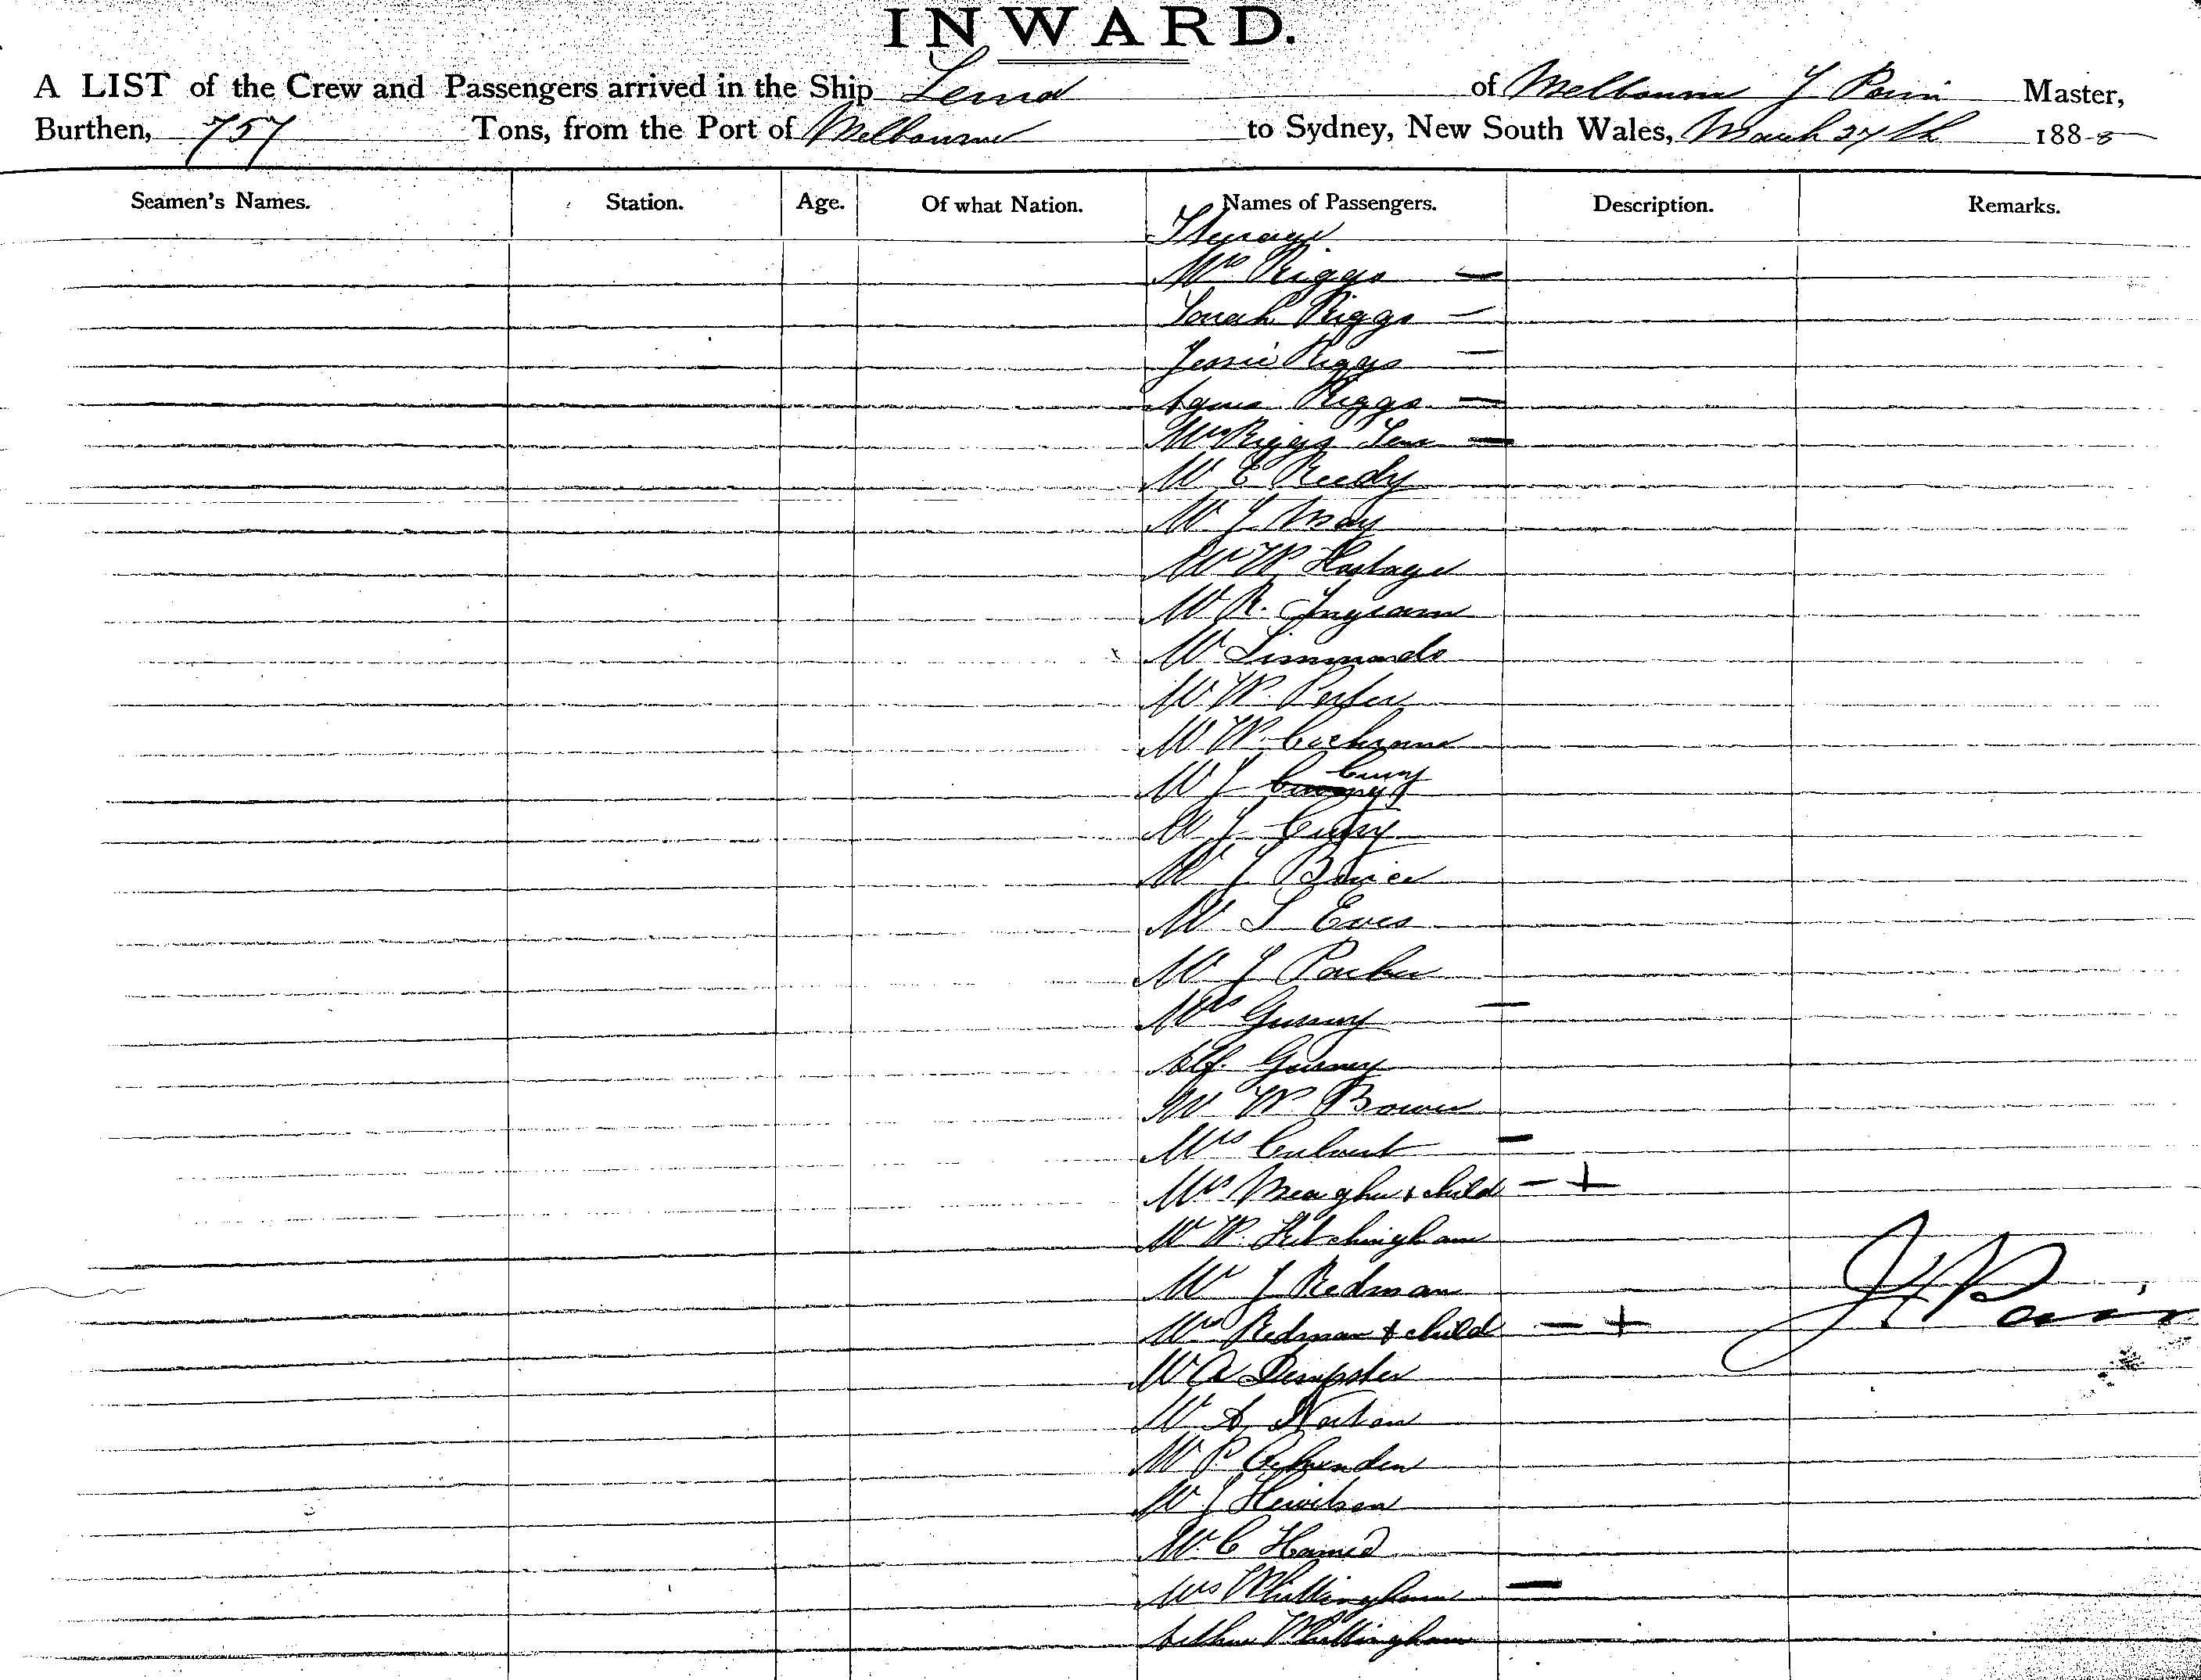 INWARD.
A LIST of the Crew and Passengers arrived in the Ship of Melbourne J Pain Master,
Burthen, 757 Tons, from the Port of Melbourne to Sydney, New South Wales, March 27th 1888
Seamen's Names. Station. Age. Of what Nation. Names of Passengers. Description. Remarks.
Steerage
Mrs Riggs —
Sarah Riggs —
Jessie Riggs —
Agnes Riggs —
Mrs Riggs Sen —
Mr C Reedy
Mr J May
Mr W
Mr R. Ingram
Mr Simmonds
Mr W. Porter
Mr W. Cochrane
Mr J
Mr J
Mr J
Mr S Eves
Mr J Parker
Mrs Gurney —
Alf. Gurney
Mr W Bower
Mrs —
Mrs Meagher & child — +
Mr W. Hutchingham
Mr J Redman
Mrs Redman & child — +
Mr A Dempster
Mr A Norton
Mr P
Mr J Hewitson
Mr C
Mrs Whittingham —
Arthur Whittingham
J Pain